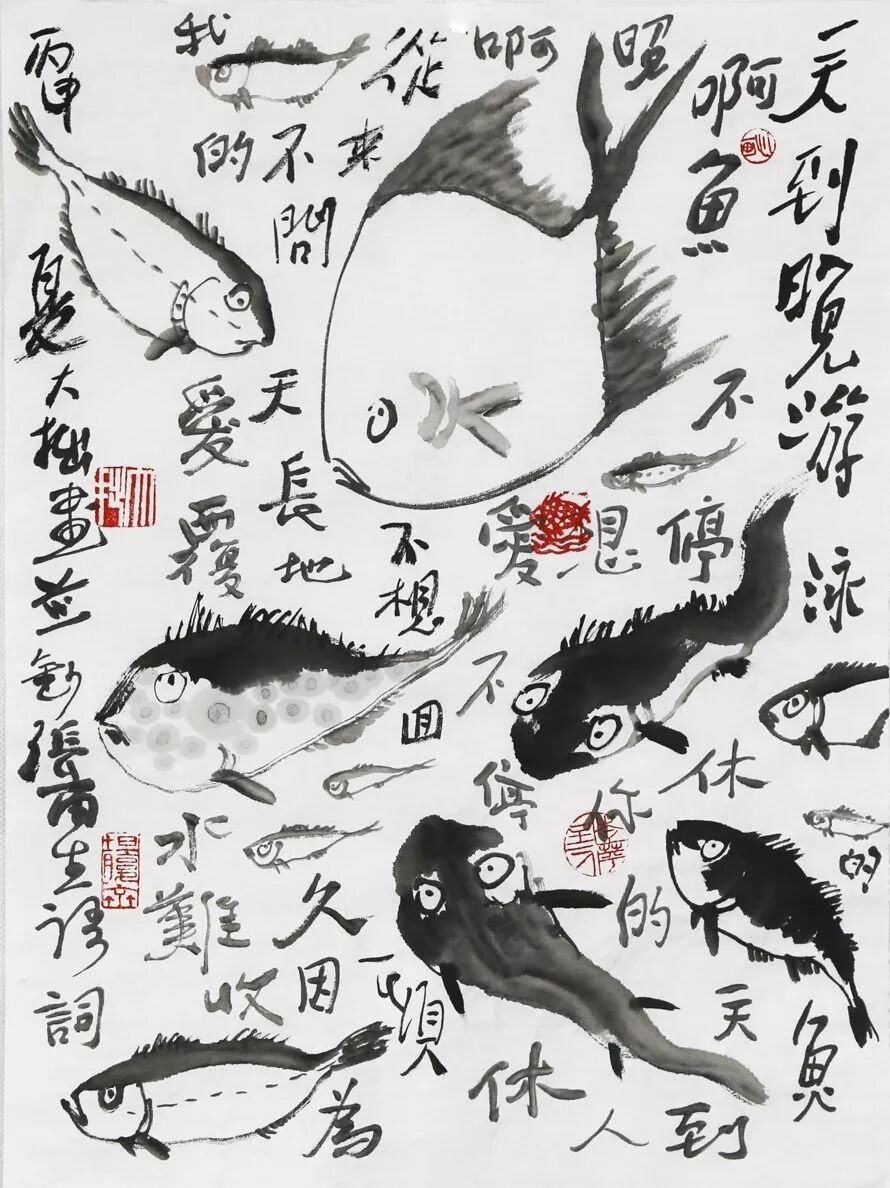 一天到晚游泳的魚
啊魚不停休一天到
晚想你的人
啊愛不停休
從來不想回頭
不問天長地久因為
我的愛覆水難收
丙申夏大拙畫並錄張雨生歌詞
大拙